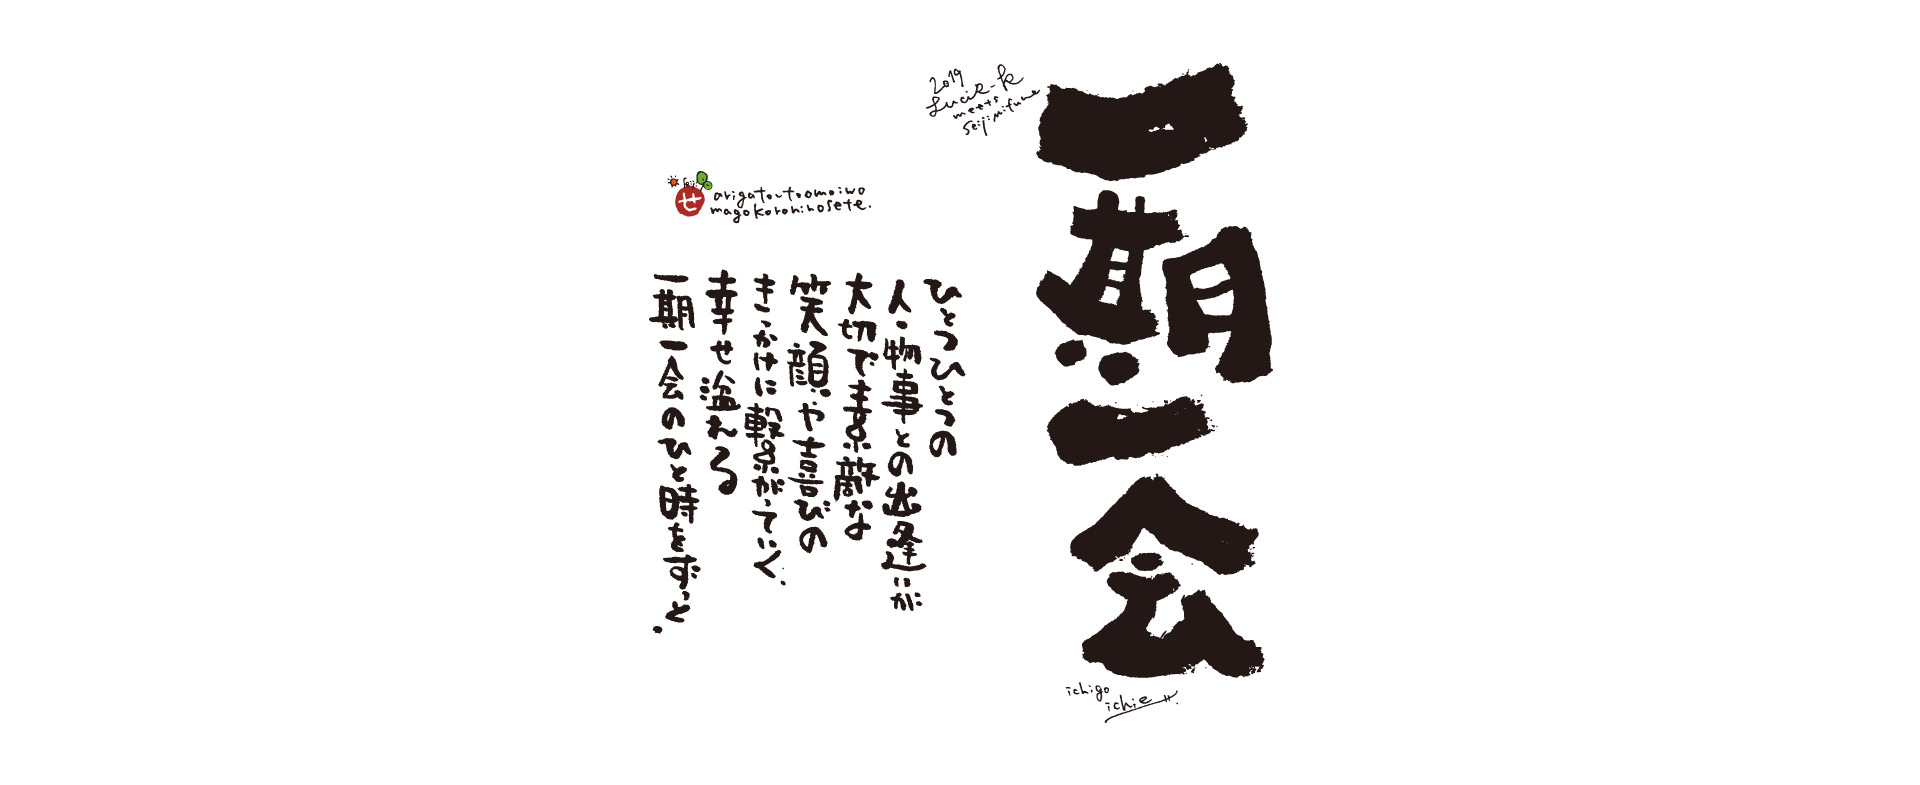 一期一会
2019
Lucie-K
meets
seiji mifune
ichigo
ichie!!
ひとつひとつの
人・物事との出逢いが
大切で素敵な
笑顔や喜びの
きっかけに繋がっていく.
幸せ溢れる
一期一会のひと時をずっと.
seiji
せ
arigato-toomoiwo
magokoroninosete.